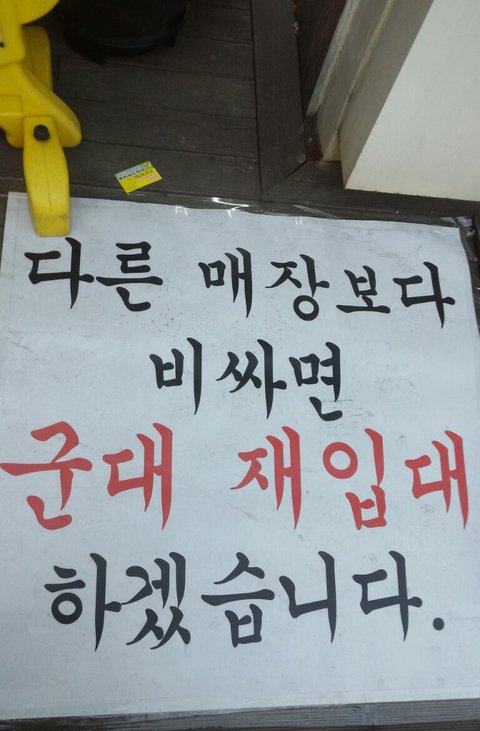 다른 매장보다
비싸면
군대 재입대
하겠습니다.